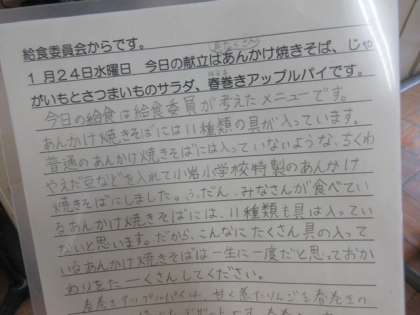 給食委員会からです。
1月24日水曜日　今日の献立はあんかけ焼きそば、じゃ
がいもとさつまいものサラダ、春巻きアップルパイです。
今日の給食は給食委員が考えたメニューです。
あんかけ焼きそばには11種類の具が入っています。
普通のあんかけ焼きそばには入っていないような、ちくわ
やえだ豆などを入れて小岩小学校特製のあんかけ
焼きそばにしました。ふだん、みなさんが食べてい
るあんかけ焼きそばには、11種類も具は入ってい
ないと思います。だから、こんなにたくさん具の入って
いるあんかけ焼きそばは一生に一度だと思っておか
わりをたーくさんしてください。
春巻きアップルパイは、甘く煮たりんごを春巻きの